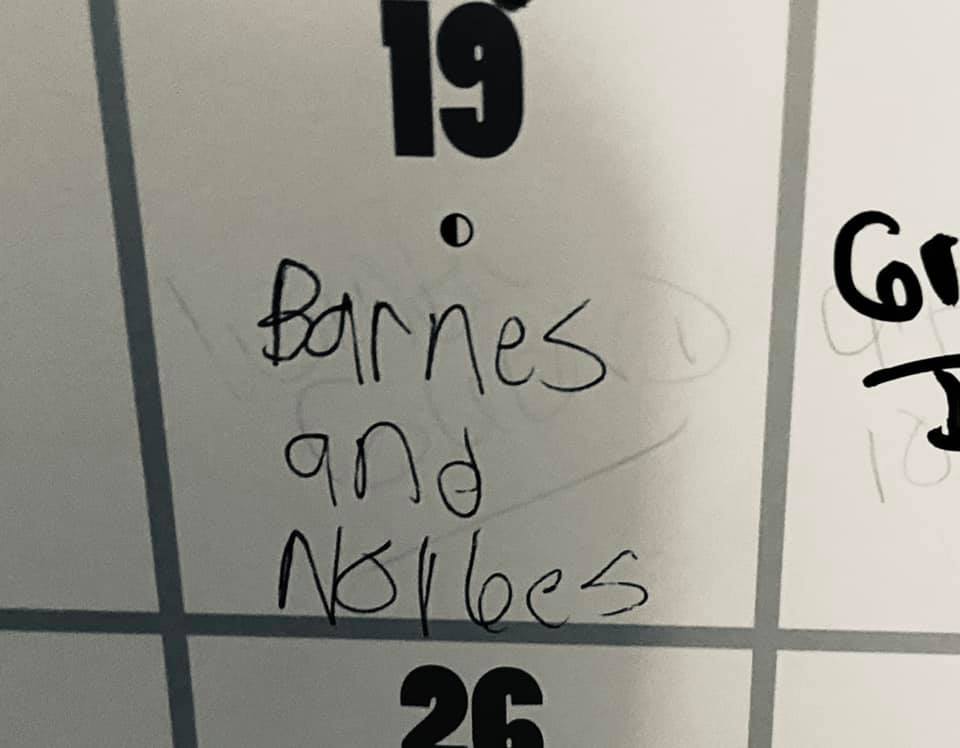 19
Barnes
and
Norbes
26